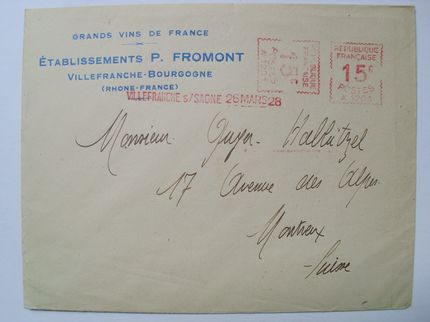 GRANDS VINS DE FRANCE
ÉTABLISSEMENTS P. FROMONT
VILLEFRANCHE-BOURGOGNE
(RHONE-FRANCE)
VILLEFRANCHE s/SAONE 26 MARS 28
RÉPUBLIQUE
FRANÇAISE
15
POSTES
Monsieur
17 Avenue des Alpes
Montreux
Suisse